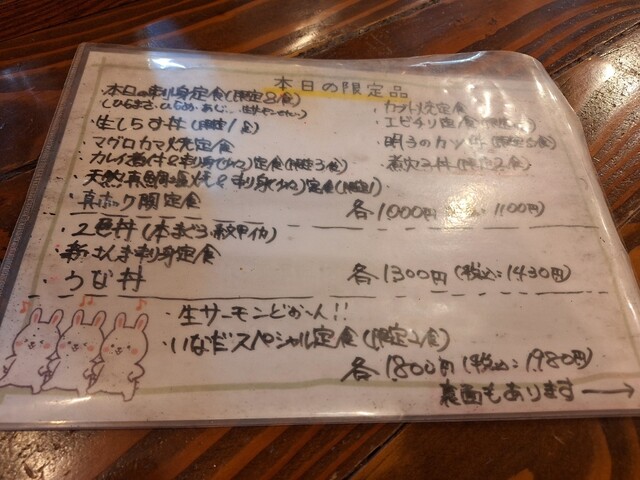 本日の限定品
・本日の刺身定食(限定8食)
(ひらまさ、ひらめ、あじ、
・生しらす丼(限定1食)
・マグロカマ焼定食
・カレイ煮付&刺身(少々)定食(限定3食)
・天然真鯛塩焼&刺身(少々)定食(限定1)
・真ホッケ開定食
・カットステーキ定食
・エビチリ定食
・明
各1000円 1100円)
・2色丼(本まぐろ&紋甲イカ)
・新さんま刺身定食
・うな丼
各1300円(税込:1430円)
・生サーモンどか〜ん!!
・いなだスペシャル定食(限定2食)
各1800円(税込:1980円)
裏面もあります→